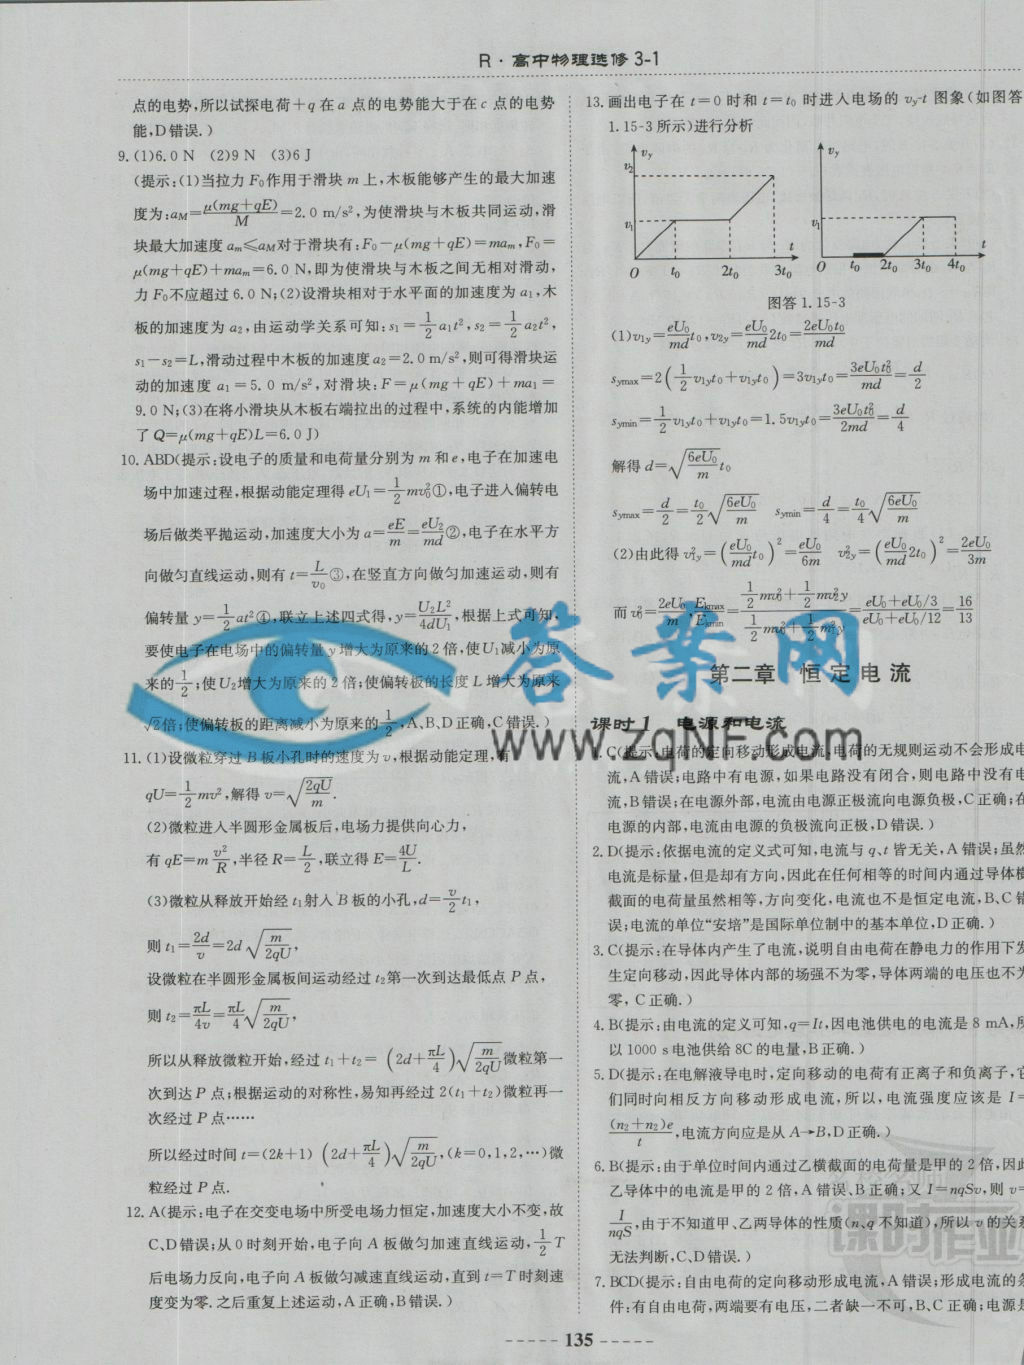 R·高中物理选修3-1
点的电势,所以试探电荷+q在a点的电势能大于在c点的电势
能,D错误。)
9. (1)6.0 N (2)9 N (3)6 J
(提示:(1)当拉力F₀作用于滑块m上,木板能够产生的最大加速
度为:aM=μ(mg+qE)/M=2.0 m/s²,为使滑块与木板共同运动,滑
块最大加速度am≤aM对于滑块有:F₀-μ(mg+qE)=mam,F₀=
μ(mg+qE)+mam=6.0 N,即为使滑块与木板之间无相对滑动,
力F₀不应超过6.0 N;(2)设滑块相对于水平面的加速度为a₁,木
板的加速度为a₂,由运动学关系可知:s₁=1/2a₁t²,s₂=1/2a₂t²,
s₁-s₂=L,滑动过程中木板的加速度a₂=2.0 m/s²,则可得滑块运
动的加速度a₁=5.0 m/s²,对滑块:F=μ(mg+qE)+ma₁=
9.0 N;(3)在将小滑块从木板右端拉出的过程中,系统的内能增加
了Q=μ(mg+qE)L=6.0 J)
10. ABD(提示:设电子的质量和电荷量分别为m和e,电子在加速电
场中加速过程,根据动能定理得eU₁=1/2mv₀²①,电子进入偏转电
场后做类平抛运动,加速度大小为a=eE/m=eU₂/md②,电子在水平方
向做匀直线运动,则有t=L/v₀③,在竖直方向做匀加速运动,则有
偏转量y=1/2at²④,联立上述四式得,y=U₂L²/4dU₁,根据上式可知,
要使电子在电场中的偏转量y增大为原来的2倍,使U₁减小为原
来的1/2;使U₂增大为原来的2倍;使偏转板的长度L增大为原来
√2倍;使偏转板的距离减小为原来的1/2,A、B、D正确,C错误。)
11. (1)设微粒穿过B板小孔时的速度为v,根据动能定理,有
qU=1/2mv²,解得v=√(2qU/m).
(2)微粒进入半圆形金属板后,电场力提供向心力,
有qE=m v²/R,半径R=L/2,联立得E=4U/L.
(3)微粒从释放开始经t₁射入B板的小孔,d=v/2 t₁,
则t₁=2d/v=2d√(m/2qU),
设微粒在半圆形金属板间运动经过t₂第一次到达最低点P点,
则t₂=πL/4v=πL/4√(m/2qU),
所以从释放微粒开始,经过t₁+t₂=(2d+πL/4)√(m/2qU)微粒第一
次到达P点;根据运动的对称性,易知再经过2(t₁+t₂)微粒再一
次经过P点……
所以经过时间t=(2k+1)(2d+πL/4)√(m/2qU),(k=0,1,2,…)微
粒经过P点.
12. A(提示:电子在交变电场中所受电场力恒定,加速度大小不变,故
C、D错误;从0时刻开始,电子向A板做匀加速直线运动,1/2T
后电场力反向,电子向A板做匀减速直线运动,直到t=T时刻速
度变为零.之后重复上述运动,A正确,B错误。)
13. 画出电子在t=0时和t=t₀时进入电场的vy-t图象(如图答
1.15-3所示)进行分析
vy v₂ v₁ O t₀ 2t₀ 3t₀ t
vy v₁ O t₀ 2t₀ 3t₀ 4t₀ t
图答1.15-3
(1)v₁y=eU₀/md t₀,v₂y=eU₀/md 2t₀=2eU₀t₀/md
symax=2(1/2v₁yt₀+v₁yt₀)=3v₁yt₀=3eU₀t₀²/md=d/2
symin=1/2v₁yt₀+v₁yt₀=1.5v₁yt₀=3eU₀t₀²/2md=d/4
解得d=√(6eU₀/m)t₀
symax=d/2=t₀/2√(6eU₀/m) symin=d/4=t₀/4√(6eU₀/m)
(2)由此得v₁y²=(eU₀/md t₀)²=eU₀/6m v₂y²=(eU₀/md 2t₀)²=2eU₀/3m
而v₀²=2eU₀/m,Ekmax/Ekmin=(1/2mv₀²+1/2mv₂²y)/(1/2mv₀²+1/2mv₁²y)=(eU₀+eU₀/3)/(eU₀+eU₀/12)=16/13
第二章 恒定电流
课时1 电源和电流
1. C(提示:电荷的定向移动形成电流,电荷的无规则运动不会形成电
流,A错误;电路中有电源,如果电路没有闭合,则电路中没有电
流,B错误;在电源外部,电流由电源正极流向电源负极,C正确;在
电源的内部,电流由电源的负极流向正极,D错误。)
2. D(提示:依据电流的定义式可知,电流与q、t皆无关,A错误;虽然
电流是标量,但是却有方向,因此在任何相等的时间内通过导体横
截面的电荷量虽然相等,方向变化,电流也不是恒定电流,B、C错
误;电流的单位“安培”是国际单位制中的基本单位,D正确。)
3. C(提示:在导体内产生了电流,说明自由电荷在静电力的作用下发
生定向移动,因此导体内部的场强不为零,导体两端的电压也不为
零,C正确。)
4. B(提示:由电流的定义可知,q=It,因电池供电的电流是8 mA,所
以1000 s电池供给8C的电量,B正确。)
5. D(提示:在电解液导电时,定向移动的电荷有正离子和负离子,它
们同时向相反方向移动形成电流,所以,电流强度应该是I=
(n₂+n₂)e/t,电流方向应是从A→B,D正确。)
6. B(提示:由于单位时间内通过乙横截面的电荷量是甲的2倍,因此
乙导体中的电流是甲的2倍,A错误、B正确;又I=nqSv,则v=
I/nqS,由于不知道甲、乙两导体的性质(n、q不知道),所以v的关系
无法判断,C、D错误。)
7. BCD(提示:自由电荷的定向移动形成电流,A错误;形成电流的条
件:有自由电荷,两端要有电压,二者缺一不可,B、C正确;电源是
135
答案网
www.zqNF.com
课时作业